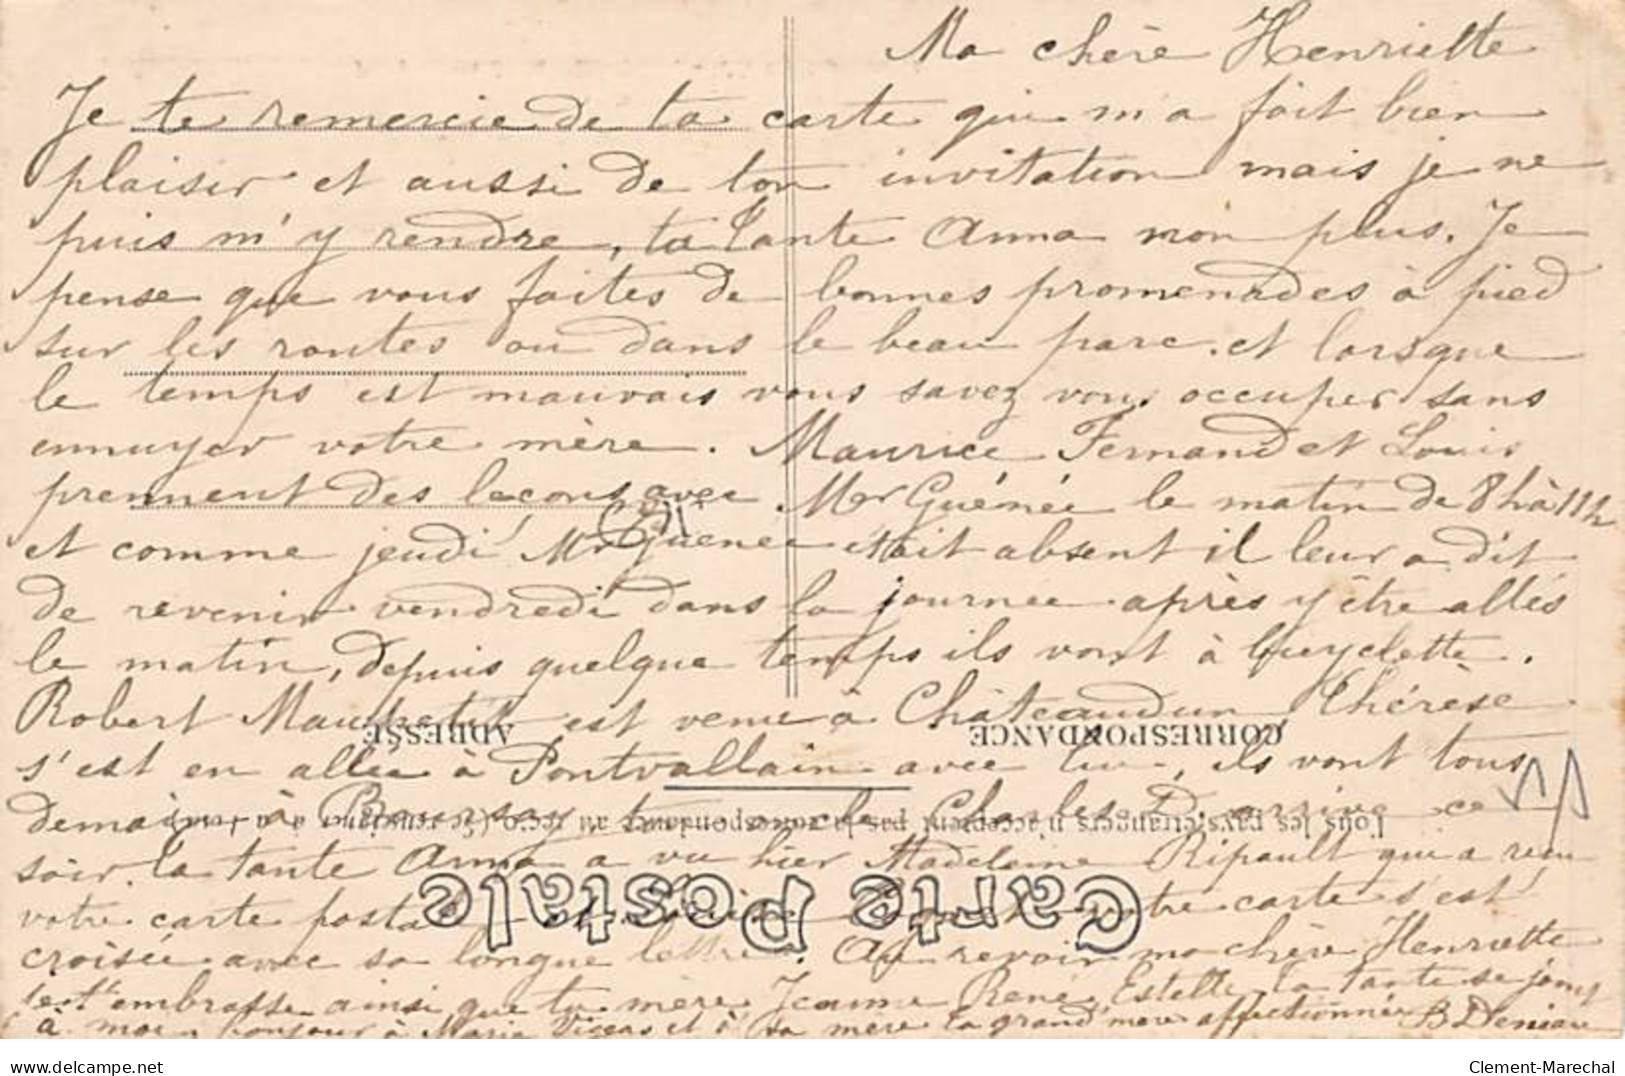 Ma chère Henriette
Je te remercie de ta carte qui m'a fait bien
plaisir et aussi de ton invitation mais je ne
puis m'y rendre, ta tante Anna non plus. Je
pense que vous faites de bonnes promenades à pied
sur les routes ou dans le beau parc. et lorsque
le temps est mauvais vous savez vous occuper sans
ennuyer votre mère. Maurice Fernand et Louis
prennent des leçons avec Mr Guénée le matin de 8h à 11h
et comme jeudi Mr Guenée était absent il leur a dit
de revenir vendredi dans la journee après y être allés
le matin, depuis quelque temps ils vont à bicyclette.
Robert est venu à Châteaudun Thérèse
ADRESSE CORRESPONDANCE
s'est en allée à Pontvallain avec lui, ils vont tous
demain à oncle Charles D arrive ce
Tous les pays étrangers n'acceptent pas la correspondance au recto (Se renseigner à la Poste)
soir. la tante Anna a vu hier Madeleine Ripault qui a reçu
Carte Postale
votre carte postale votre carte s'est
croisée avec sa longue lettre. Au revoir ma chère Henriette
je t'embrasse ainsi que ta mère Jeanne René, Estelle, la tante se joint
à moi, bonjour à Marie et à sa mère ta grand'mère affectionnée B Deniau
Clement-Marechal